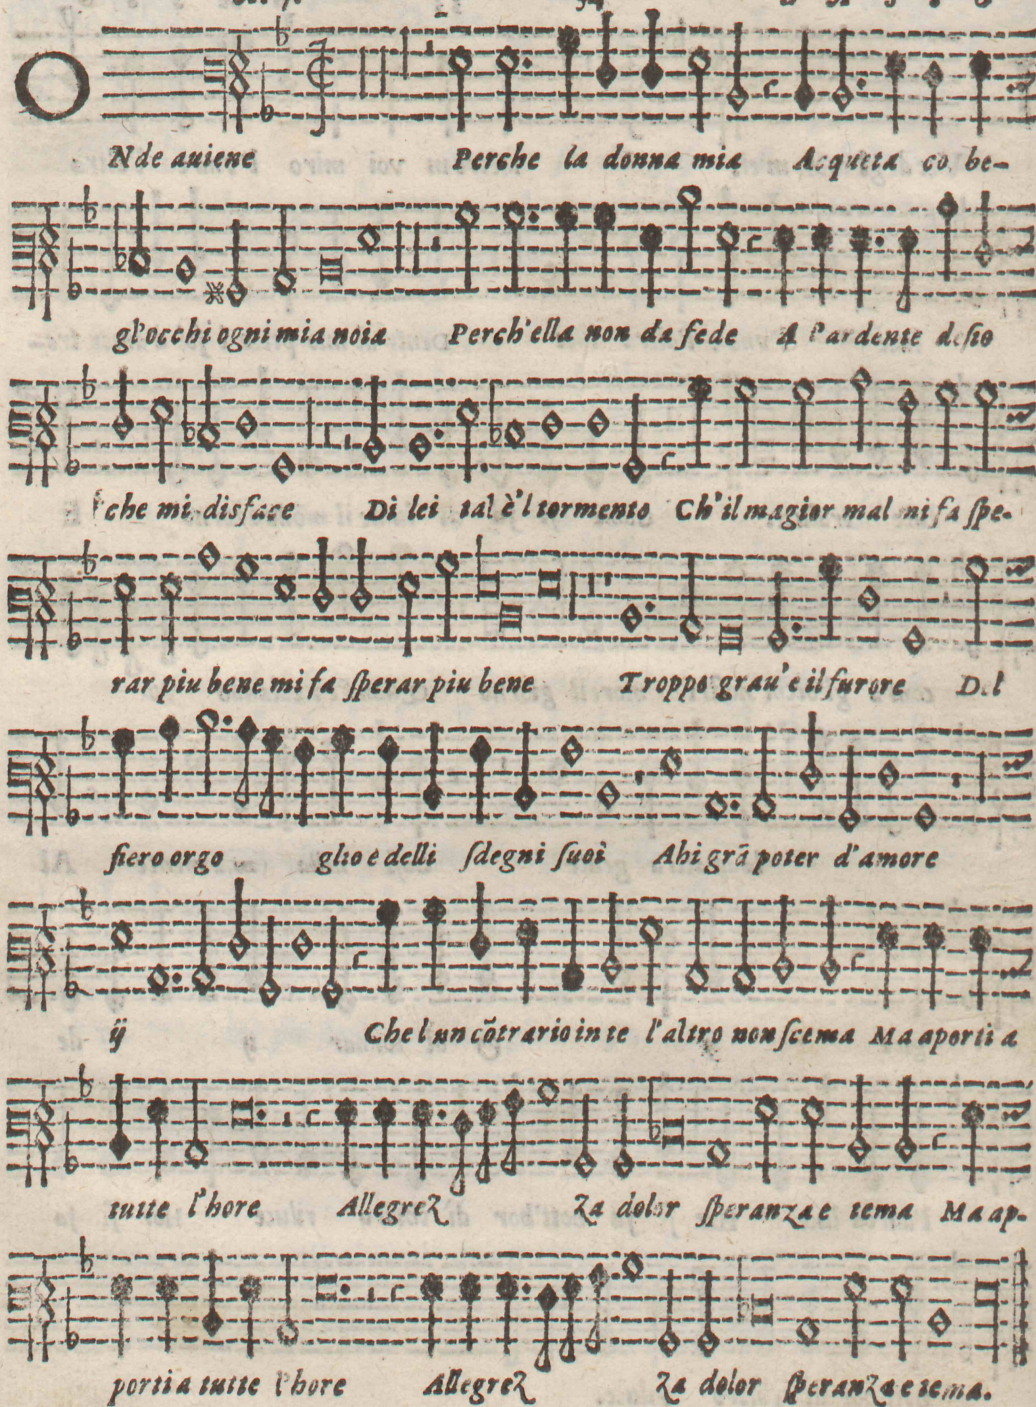 O Nde auiene Perche la donna mia Acqueta co be-
gl'occhi ogni mia noia Perch'ella non da fede A l'ardente desio
che mi disface Di lei tal è'l tormento Ch'il magior mal mi fa spe-
rar piu bene mi fa sperar piu bene Troppo grau'e il furore Del
fiero orgo glio e delli sdegni suoi Ahi grã poter d'amore
ij Che l'un cõtrario in te l'altro non scema Ma aporti a
tutte l'hore Allegrez za dolor speranza e tema Ma ap-
porti a tutte l'hore Allegrez za dolor speranza e tema.